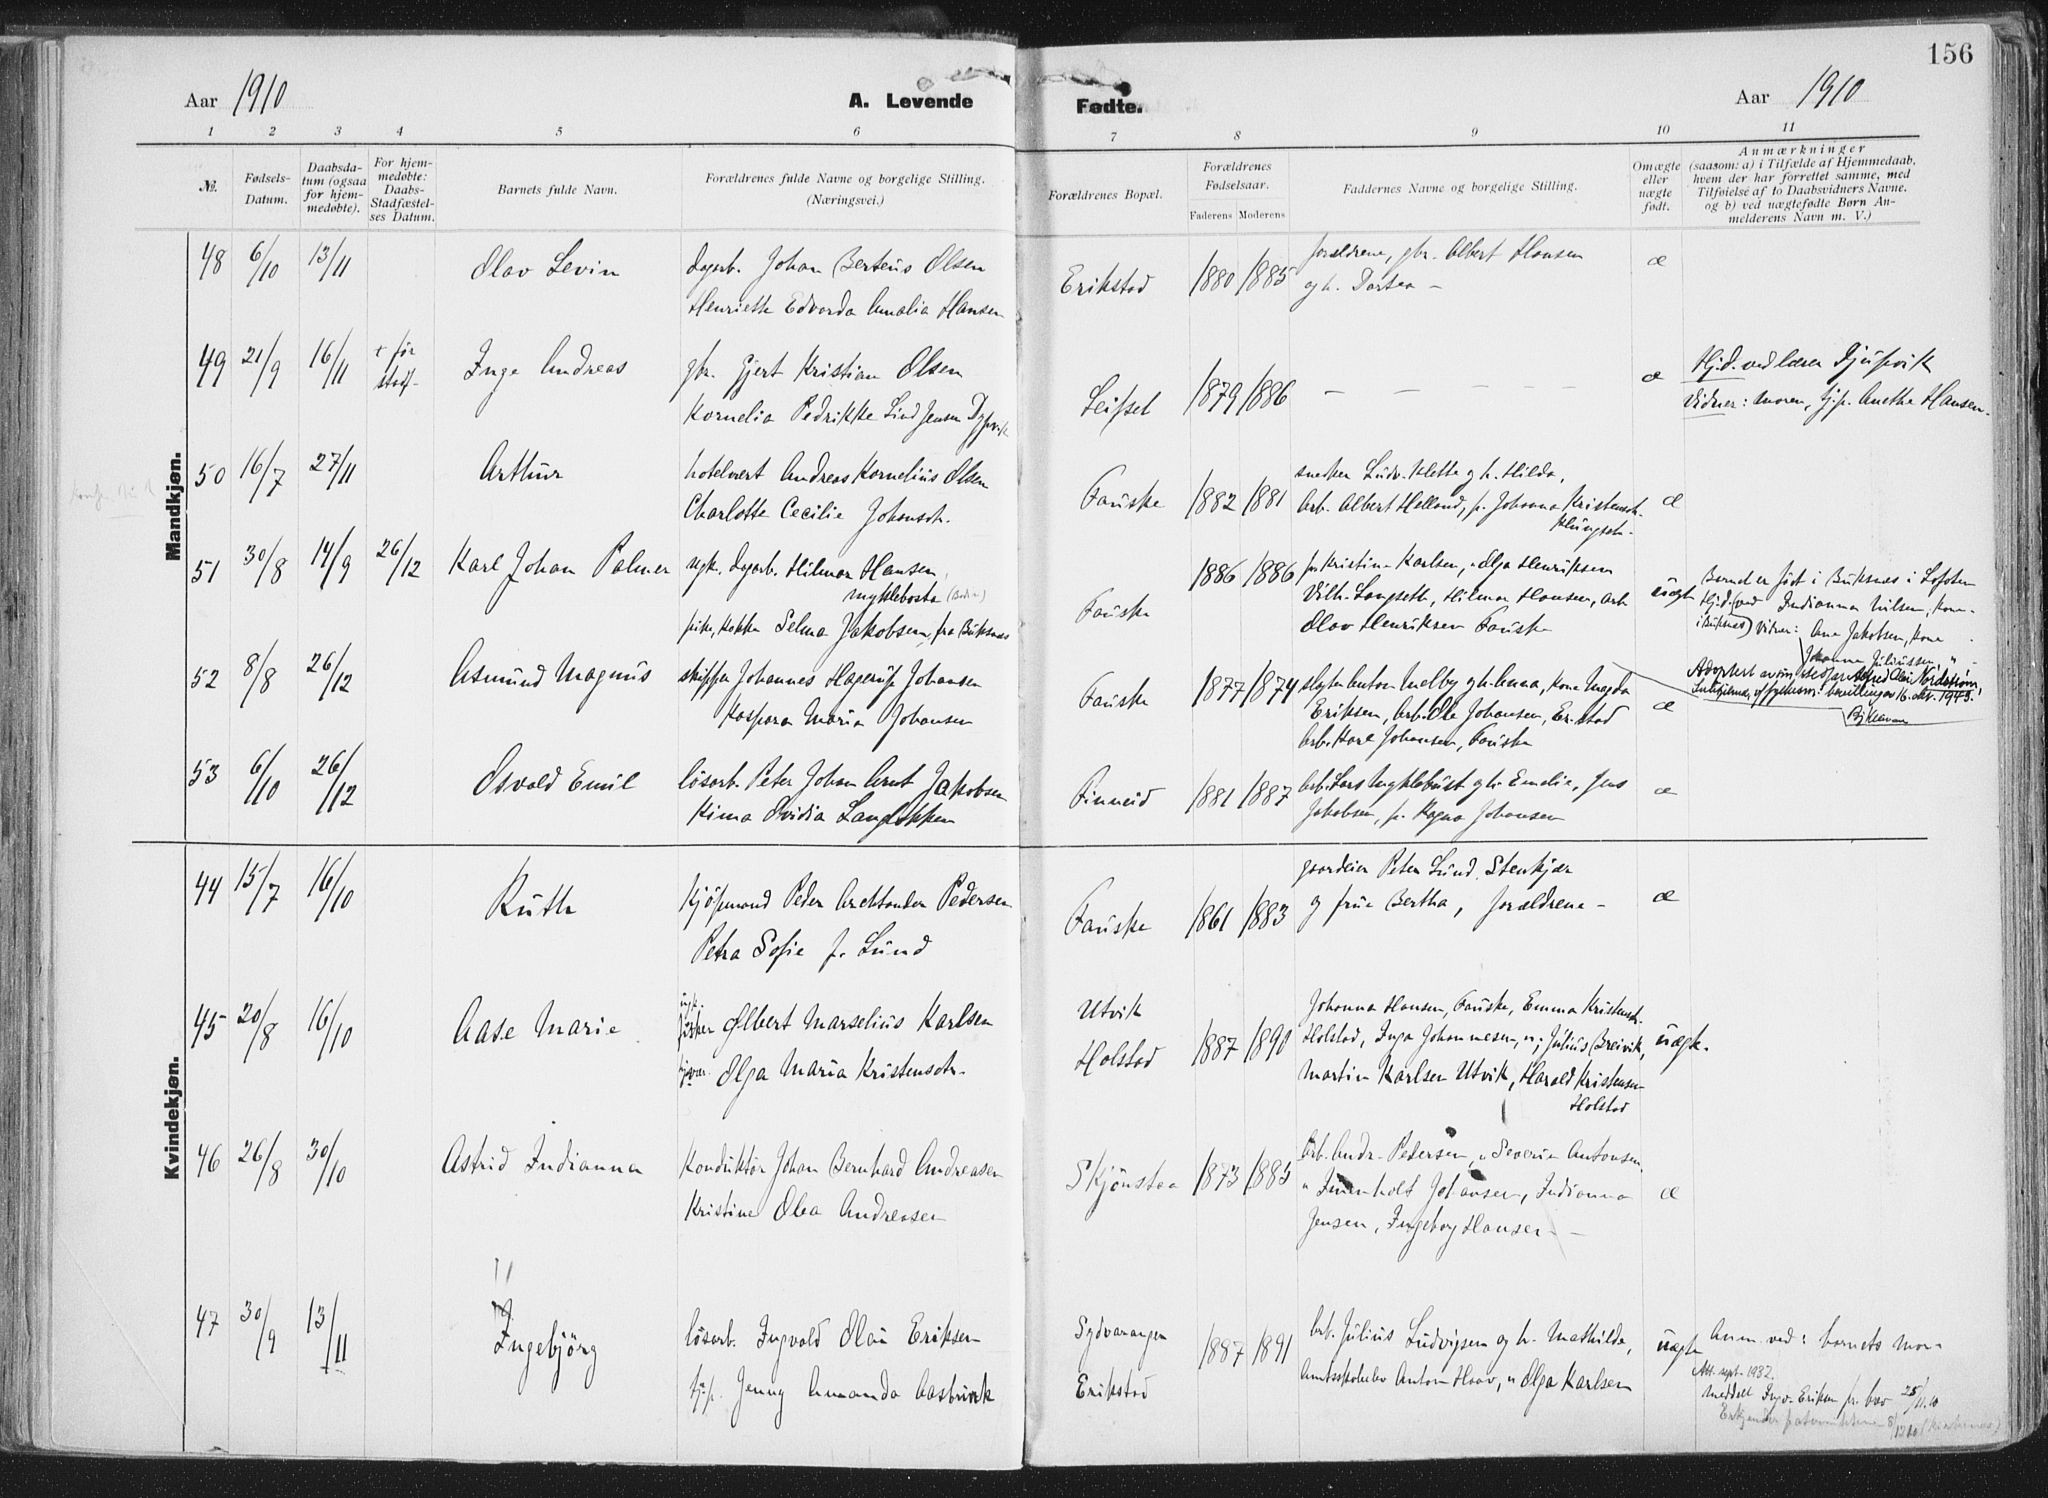 156
Aar 1910 A. Levende Fødte. Aar 1910
1 2 3 4 5 6 7 8 9 10 11
№.
Fødsels-
Datum.
Daabsda-
tum (ogsaa
for hjem-
medøbte).
For hjem-
medøbte:
Daabs-
Stadfæstel-
ses Datum.
Barnets fulde Navn.
Forældrenes fulde Navne og borgelige Stilling.
(Næringsvei.)
Forældrenes Bopæl.
Forældrenes
Fødselsaar.
Faderens Moderens
Faddernes Navne og borgelige Stilling.
Omægte
eller
uægte
født.
Anmærkninger
(saasom: a) i Tilfælde af Hjemmedaab,
hvem der har forrettet samme, med
Tilføielse af to Daabsvidners Navne.
og b) ved uægtefødte Børn An-
melderens Navn m. V.)
Mandkjøn.
48 6/10 13/11 Olav Levin
dagarb. Johan Berteus Olsen
Henriette Edvarda Amalia Hansen
Erikstad 1880 1885
forældrene, gbr. Albert Hansen
og h. Dortea –
æ
49 21/9 16/11 + før
stadf.
Inge Andreas
gbr. Gjert Kristian Olsen
Kornelia Pedrikke Lind Jensen Dypvik
Leifset 1879 1886
– – – – –
æ
Hj.d. ved lærer Djupvik
Vidner: moren, tj.p. Anethe Hansen.
50 16/7 27/11 Arthur
hotelvert Andreas Kornelius Olsen
Charlotte Cecilie Johansdr.
Fauske 1882 1881
snekker Ludv. Klette og h. Hilda,
Arb. Albert Helland, p. Johanna Kristensdr.
Klungset.
æ
51 30/8 14/9 26/12 Karl Johan Palmer
ugk. dagarb. Hilmar Hansen,
Myklebostad (Bodin)
pike, kokke Selma Jakobsen, fra Buksnes
Fauske 1886 1886
p. Kristine Karlsen, " Olga Henriksen
Vilh. Langseth, Hilmar Hansen, arb.
Olav Henriksen Fauske
uægte
Barnet er født i Buksnes i Lofoten
Hj.d. (ved Indianna Nilsen, kone
i Buksnes) Vidner: Ane Jakobsen, kone
Johanna Juliussen, "
52 8/8 26/12 Asmund Magnus
skipper Johannes Hagerup Johansen
Kaspara Maria Johansen
Fauske 1877 1874
slagter Anton Melby og h. Anna, kone Magda
Eriksen, Arb. Ole Johansen, Erikstad
Arb. Karl Johansen, Fauske
æ
Adoptert av sin stedfar Alfred Olai Nordstrøm,
if. fylkesm. bevilling av 16. okt. 1943.
53 6/10 26/12 Osvald Emil
løsarb. Peter Johan Arnt Jakobsen
Kima Ovidia Langløkken
Finneid 1881 1887
Arb. Lars Myklebust og h. Emelie, Jens
Jakobsen, p. Ragna Johansen
æ
Kvindekjøn.
44 15/7 16/10 Ruth
Kjøpmand Peder Archsander Pedersen
Petra Sofie f. Lund
Fauske 1861 1883
gaardeier Peter Lund. Stenkjær
og frue Bertha, forældrene –
æ
45 20/8 16/10 Aase Marie
ugk.
fisker Albert Marselius Karlsen
Olga Maria Kristensdtr.
Utvik
Holstad
1887 1890
Johanna Hansen, Fauske, Emma Kristensdr.
Holstad, Inga Johannesen, ", Julius Breivik,
Martin Karlsen Utvik, Harald Kristensen
Holstad
uægte.
46 26/8 30/10 Astrid Indianna
Konduktør Johan Bernhard Andreasen
Kristine Olea Andreasen
Skjønstaa 1873 1885
Arb. Andr. Pedersen, " Severin Antonsen,
" Johansen, Indianna
Jensen, Ingeborg Hansen –
æ
47 30/9 13/11 Ingebjørg
løsarb. Ingvald Olai Eriksen
tj.p. Jenny Amanda Aasbrink
Sydvaranger
Erikstad
1887 1891
Arb. Julius Ludvigsen og h. Mathilde,
Amtsskoleelev Anton Haav, " Olga Karlsen
uægte
Anm. ved: barnets mor
Att. sept. 1932.
Meddelt Ingv. Eriksen pr. brev 25/11.10
Erkjender paterniteten 8/12 10 (Kirkenes)